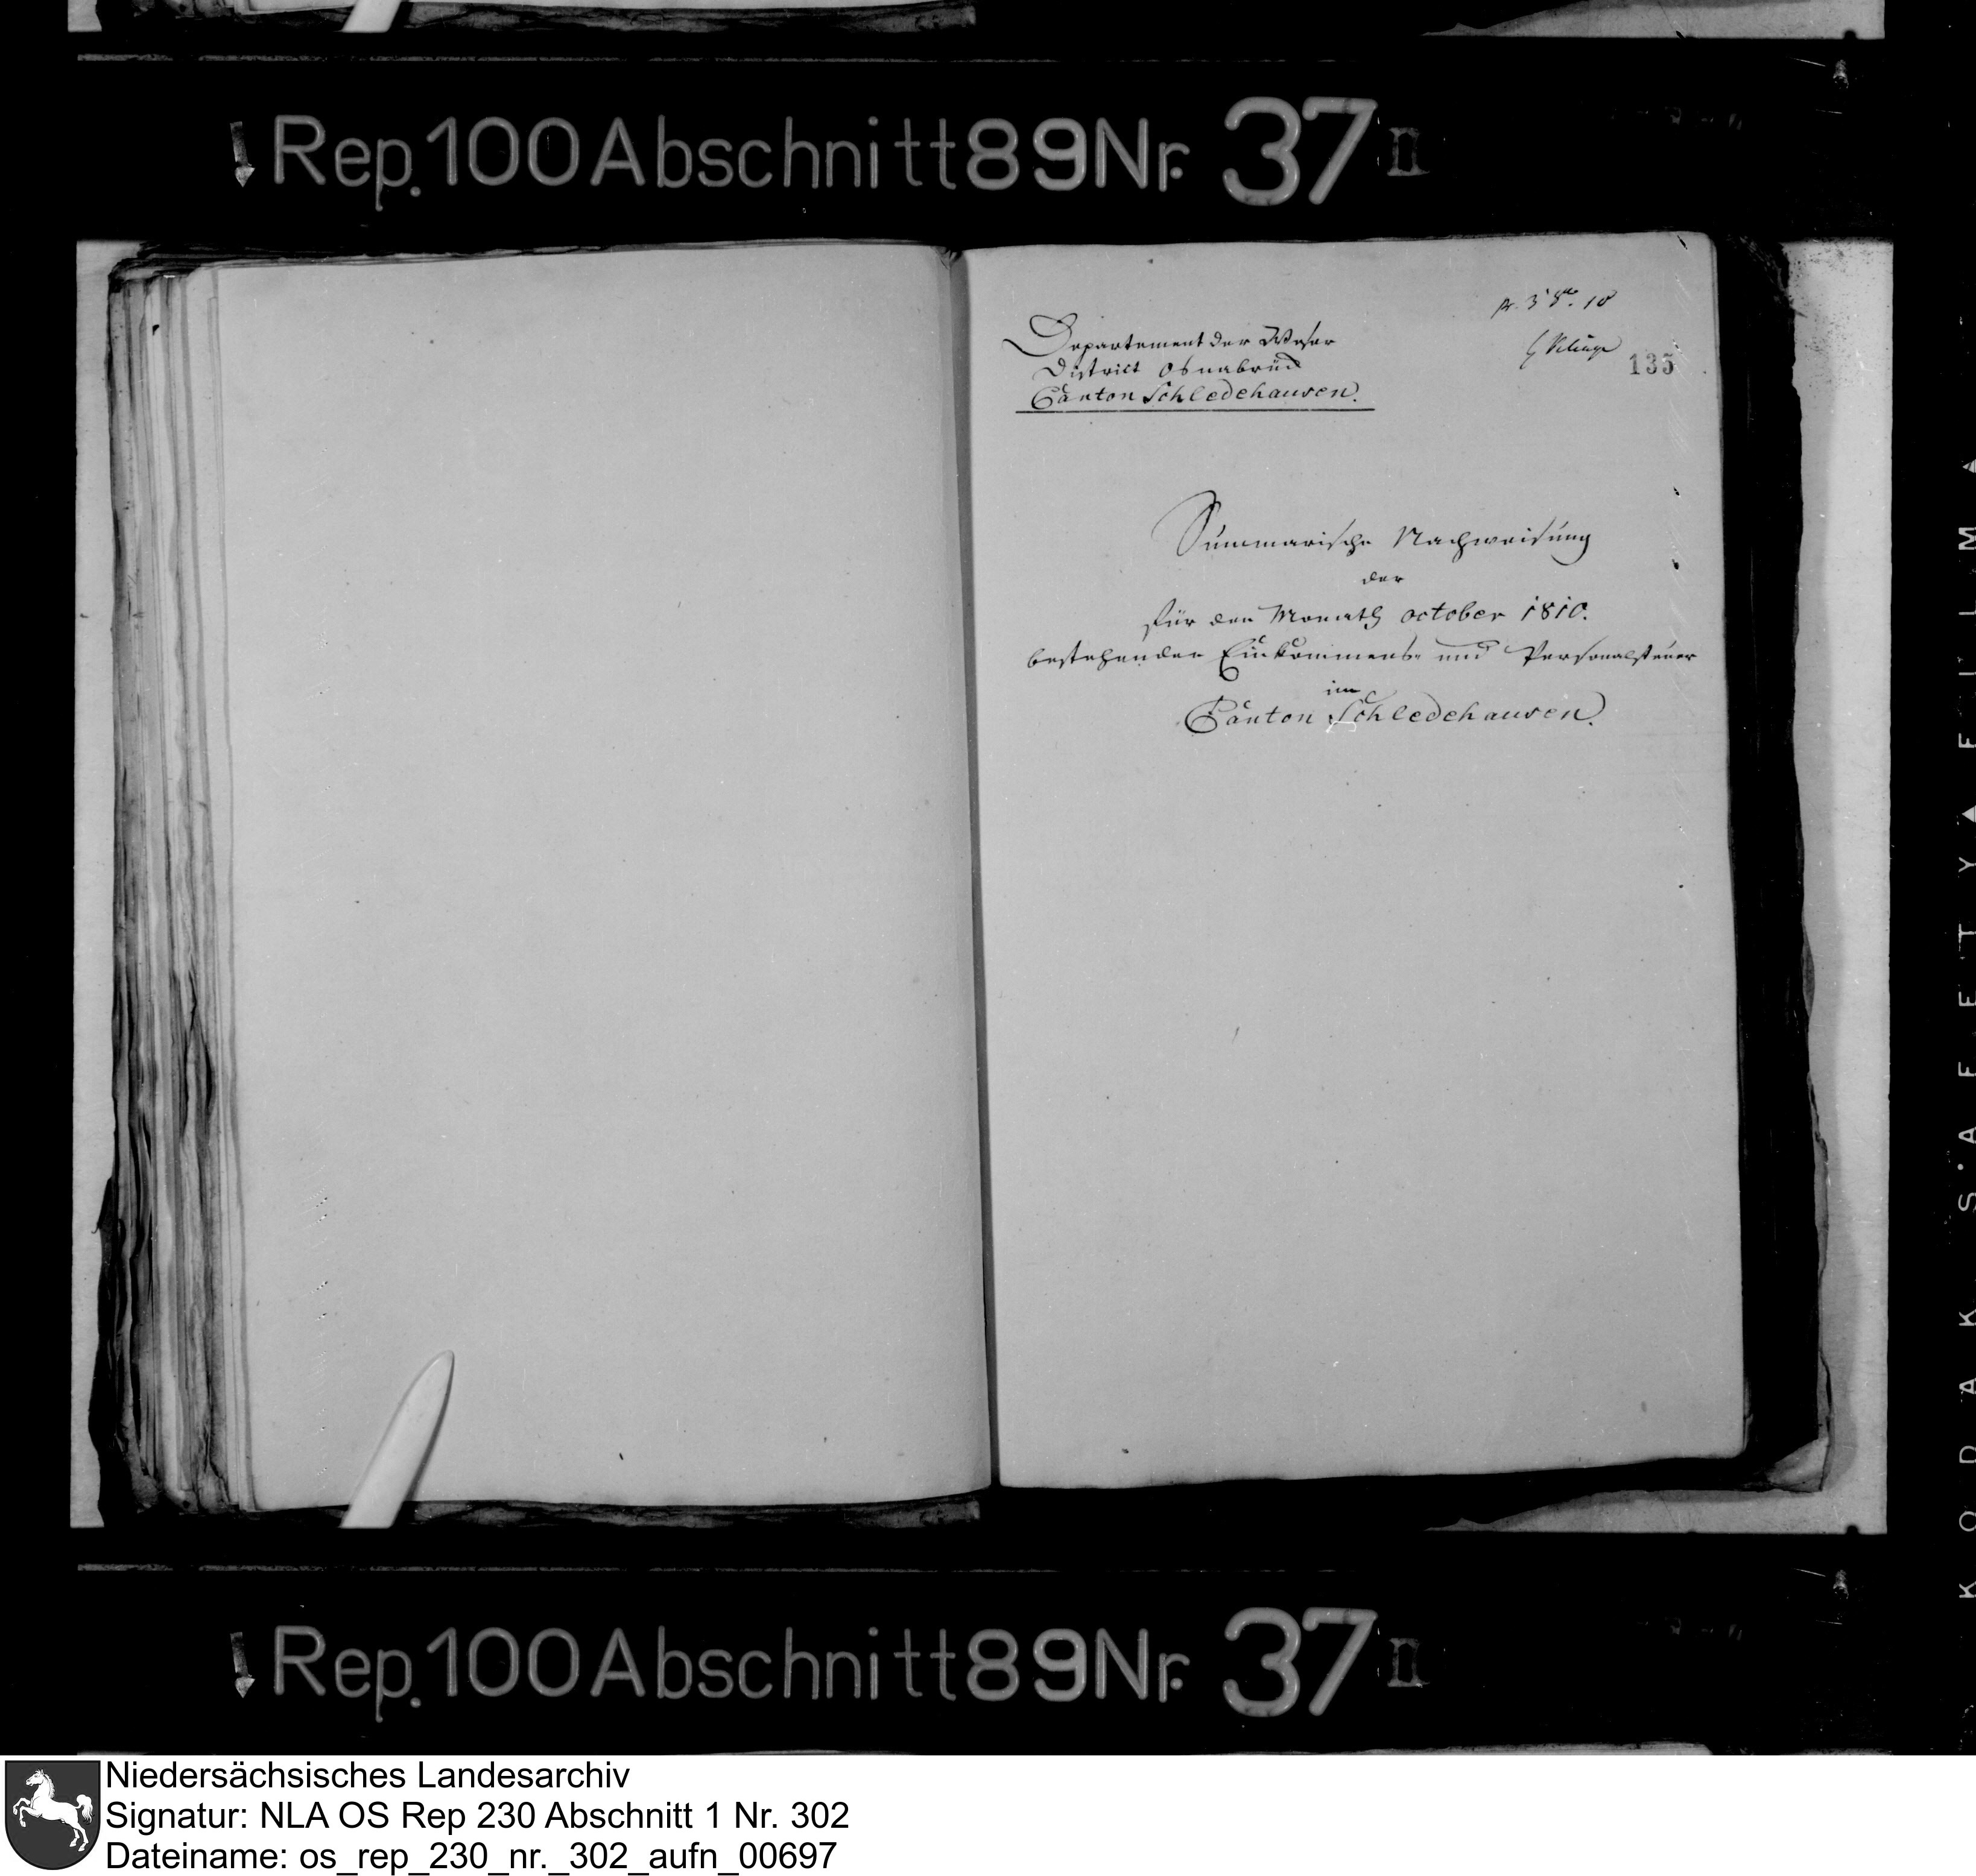 Rep. 100 Abschnitt 89 Nr. 37 II
Departement der Weser
District Osnabrück
Canton Schledehausen.
135
Summarische Nachweisung
der
für den Monath October 1810.
bestehenden Einkommens- und Personalsteuer
im
Canton Schledehausen.
Rep. 100 Abschnitt 89 Nr. 37 II
KODAK SAFETY FILM
Niedersächsisches Landesarchiv
Signatur: NLA OS Rep 230 Abschnitt 1 Nr. 302
Dateiname: os_rep_230_nr._302_aufn_00697